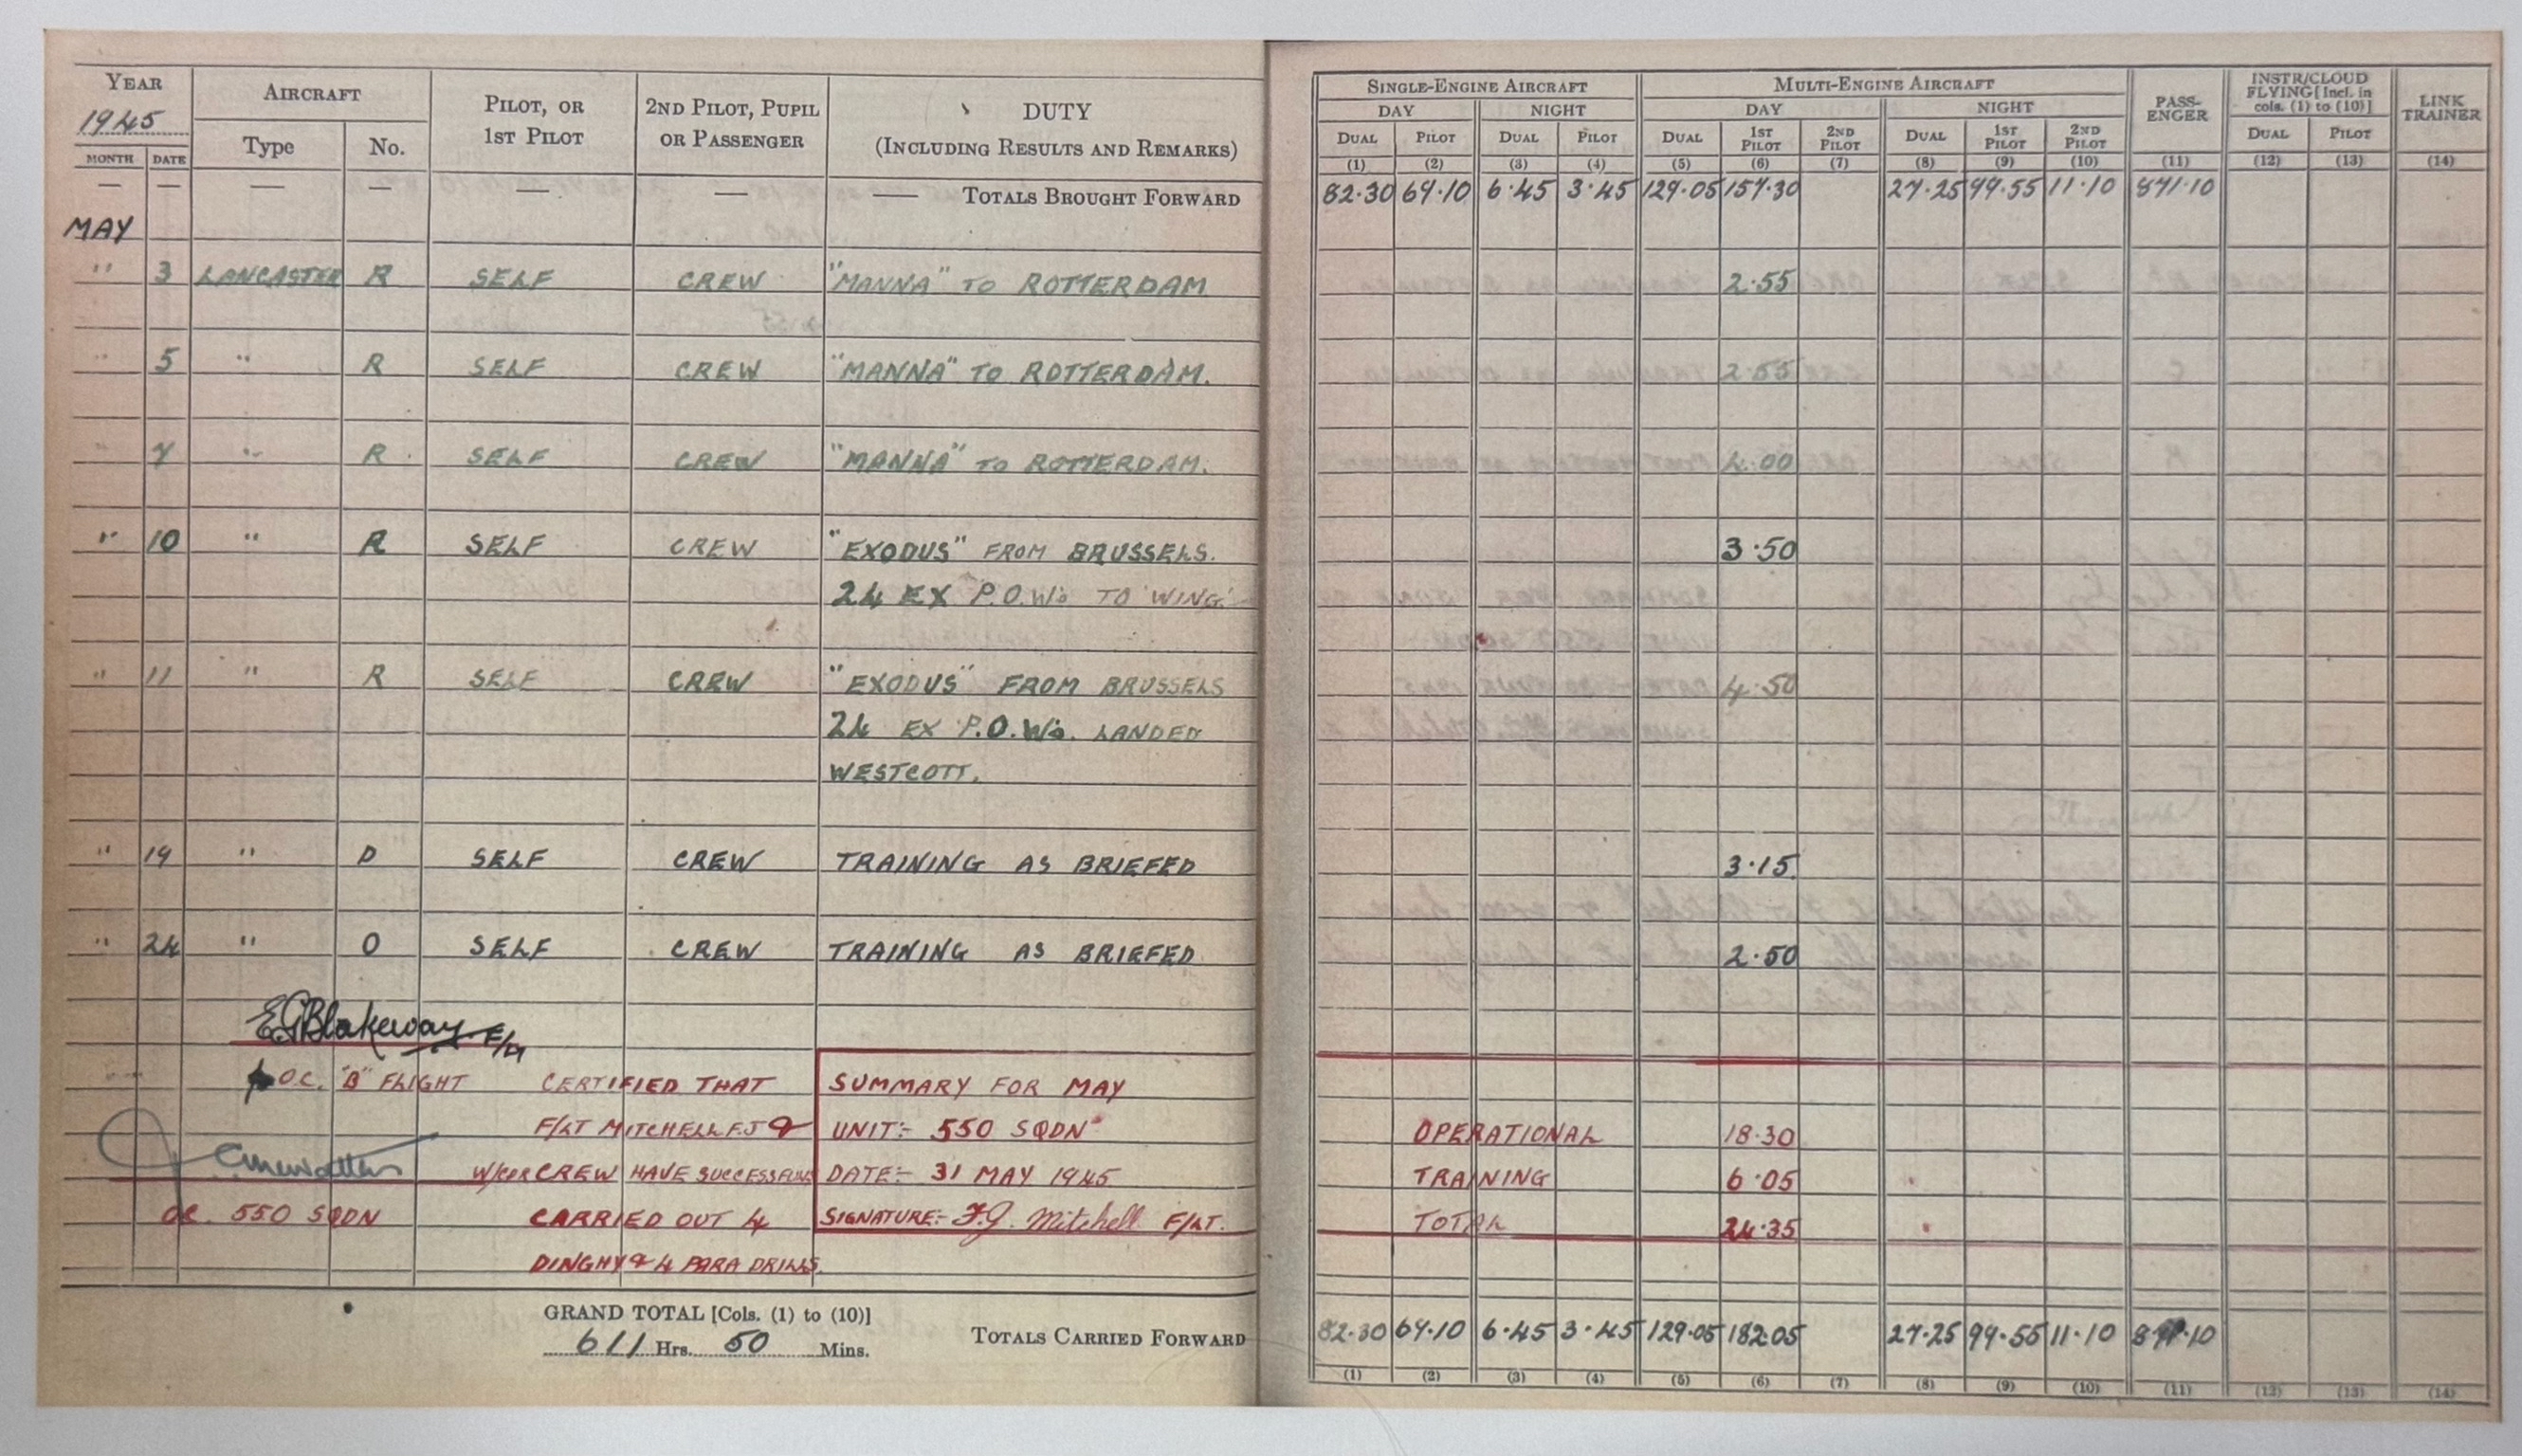 YEAR
1945
AIRCRAFT
PILOT, OR
1ST PILOT
2ND PILOT, PUPIL
OR PASSENGER
DUTY
(INCLUDING RESULTS AND REMARKS)
SINGLE-ENGINE AIRCRAFT
MULTI-ENGINE AIRCRAFT
PASS-
ENGER
INSTR/CLOUD
FLYING [Incl. in
cols. (1) to (10)]
LINK
TRAINER
MONTH DATE Type No.
DAY NIGHT DAY NIGHT
DUAL PILOT DUAL PILOT DUAL 1ST PILOT 2ND PILOT DUAL 1ST PILOT 2ND PILOT DUAL PILOT
(1) (2) (3) (4) (5) (6) (7) (8) (9) (10) (11) (12) (13) (14)
— — — — — — — TOTALS BROUGHT FORWARD 82·30 69·10 6·45 3·45 129·05 157·30 27·25 99·55 11·10 871·10
MAY
" 3 LANCASTER R SELF CREW "MANNA" TO ROTTERDAM 2·55
" 5 " R SELF CREW "MANNA" TO ROTTERDAM. 2·55
" 7 " R SELF CREW "MANNA" TO ROTTERDAM. 4·00
" 10 " R SELF CREW "EXODUS" FROM BRUSSELS. 3·50
24 EX P.O.W's TO 'WING'
" 11 " R SELF CREW "EXODUS" FROM BRUSSELS 4·50
24 EX P.O.W's. LANDED
WESTCOTT.
" 19 " D SELF CREW TRAINING AS BRIEFED 3·15.
" 24 " O SELF CREW TRAINING AS BRIEFED 2·50
EGBlakeway F/Lt
O.C. "B" FLIGHT CERTIFIED THAT SUMMARY FOR MAY
F/LT MITCHELL F.J & UNIT:- 550 SQDN OPERATIONAL 18·30
W/CDR CREW HAVE SUCCESSFULLY DATE:- 31 MAY 1945 TRAINING 6·05
OC. 550 SQDN CARRIED OUT 4 SIGNATURE:- F.J. Mitchell F/LT. TOTAL 24·35
DINGHY & 4 PARA DRILLS.
GRAND TOTAL [Cols. (1) to (10)]
611 Hrs. 50 Mins.
TOTALS CARRIED FORWARD 82·30 69·10 6·45 3·45 129·05 182·05 27·25 99·55 11·10
(1) (2) (3) (4) (5) (6) (7) (8) (9) (10) (11) (12) (13) (14)